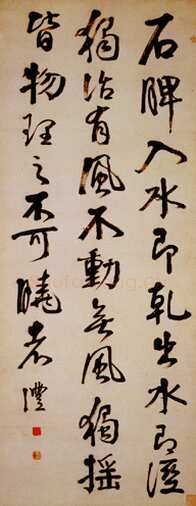 石脾入水即乾出水即溼
獨活有風不動無風獨搖
皆物理之不可曉者 澧